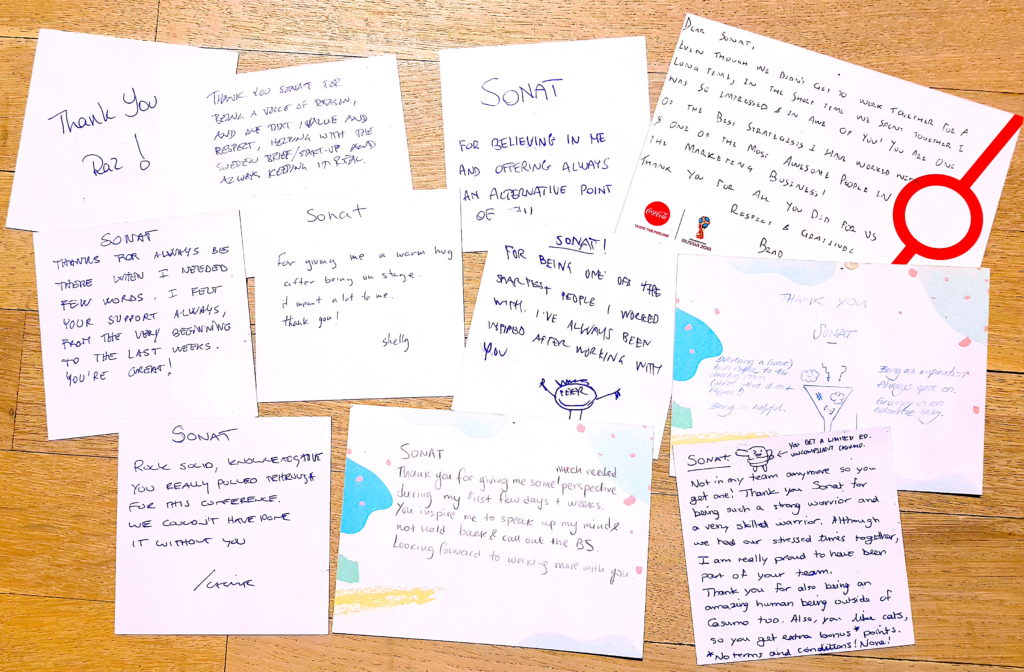 Thank You
Raz!
THANK YOU SONAT FOR
BEING A VOICE OF REASON,
AND ONE THAT I VALUE AND
RESPECT, HELPING WITH THE
SWEDEN BRIEF/START-UP AND
ALWAYS KEEPING IT REAL.
SONAT
FOR BELIEVING IN ME
AND OFFERING ALWAYS
AN ALTERNATIVE POINT
OF
DEAR SONAT,
EVEN THOUGH WE DIDN'T GET TO WORK TOGETHER FOR A
LONG TIME, IN THE SHORT TIME WE SPENT TOGETHER I
WAS SO IMPRESSED & IN AWE OF YOU! YOU ARE ONE
OF THE BEST STRATEGISTS I HAVE WORKED WITH
& ONE OF THE MOST AWESOME PEOPLE IN
THE MARKETING BUSINESS!
THANK YOU FOR ALL YOU DID FOR US
RESPECT & GRATITUDE
BRAD
Coca-Cola
TASTE THE FEELING
FIFA WORLD CUP
RUSSIA 2018
SONAT
THANKS FOR ALWAYS BE
THERE WHEN I NEEDED
FEW WORDS. I FELT
YOUR SUPPORT ALWAYS,
FROM THE VERY BEGINNING
TO THE LAST WEEKS.
YOU'RE GREAT!
Sonat
For giving me a warm hug
after being on stage.
it meant a lot to me.
thank you!
shelly
SONAT!
FOR BEING ONE OF THE
SMARTEST PEOPLE I WORKED
WITH. I'VE ALWAYS BEEN
AFTER WORKING WITH
YOU
PEER
THANK YOU
SONAT
Being an inspiration
Always spot on.
Grumpy in an
adorable way.
Being so helpful.
SONAT
ROCK SOLID, KNOWLEDGABLE
YOU REALLY PULLED THROUGH
FOR THIS CONFERENCE.
WE COULDN'T HAVE DONE
IT WITHOUT YOU
SONAT
Thank you for giving me some much needed perspective
during my first few days & weeks.
You inspire me to speak up my mind &
not hold back & call out the BS.
Looking forward to working more with you.
SONAT
YOU GET A LIMITED ED.
UNCOMPLIANT CASUMO.
Not in my team anymore so you
get one! Thank you Sonat for
being such a strong warrior and
a very skilled warrior. Although
we had our stressed times together,
I am really proud to have been
part of your team.
Thank you for also being an
amazing human being outside of
Casumo too. Also, you like cats,
so you get extra bonus* points.
*No terms and conditions! None!